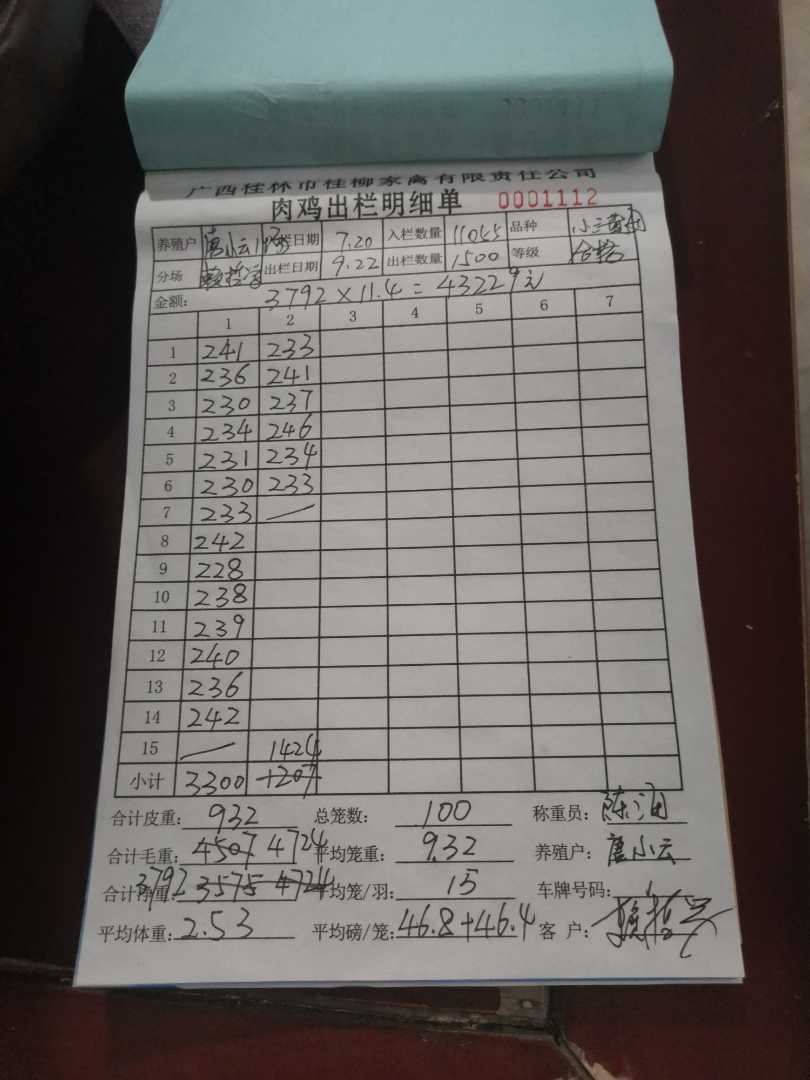 广西桂林市桂柳家禽有限责任公司
肉鸡出栏明细单 0001112
养殖户 唐小云 入栏日期 7.20 入栏数量 11045 品种
分场 出栏日期 9.22 出栏数量 1500 等级 合格
金额: 3792×11.4=43229元
1 2 3 4 5 6 7
1 241 233
2 236 241
3 230 237
4 234 246
5 231 234
6 230 233
7 233 —
8 242
9 228
10 238
11 239
12 240
13 236
14 242
15 — 1424
小计 3300 +207
合计皮重: 932 总笼数: 100 称重员: 陈润
合计毛重: 4507 4724 平均笼重: 9.32 养殖户: 唐小云
合计净重: 3792 3575 4724 平均笼/羽: 15 车牌号码:
平均体重: 2.53 平均磅/笼: 46.8+46.4 客户: